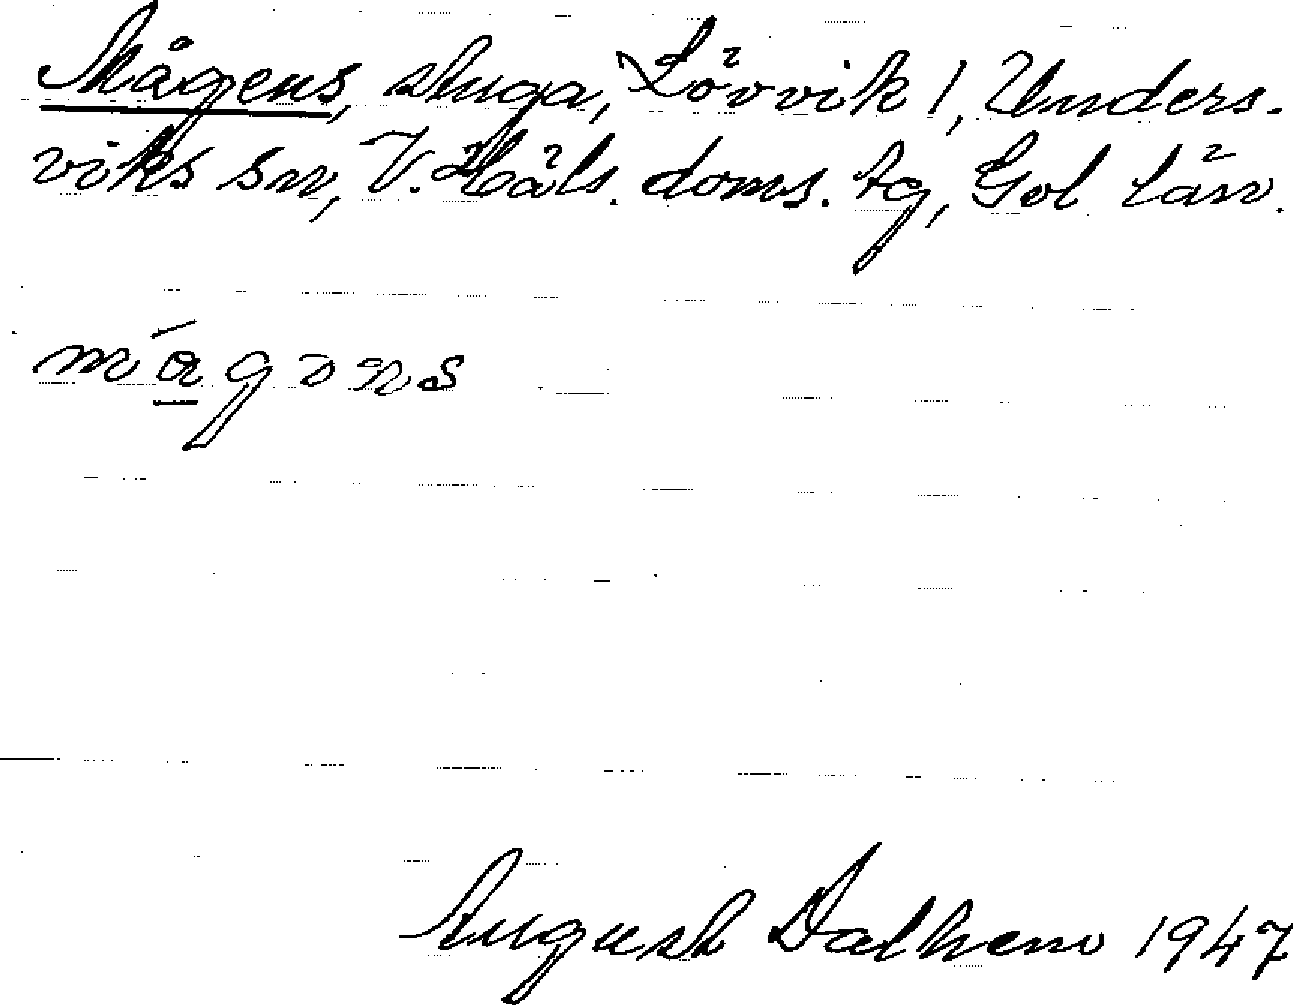 Mågens, stuga, Lövvik 1, Unders-
viks sn, V. Häls. doms. tg, Gol län.
August Dalhem 1947